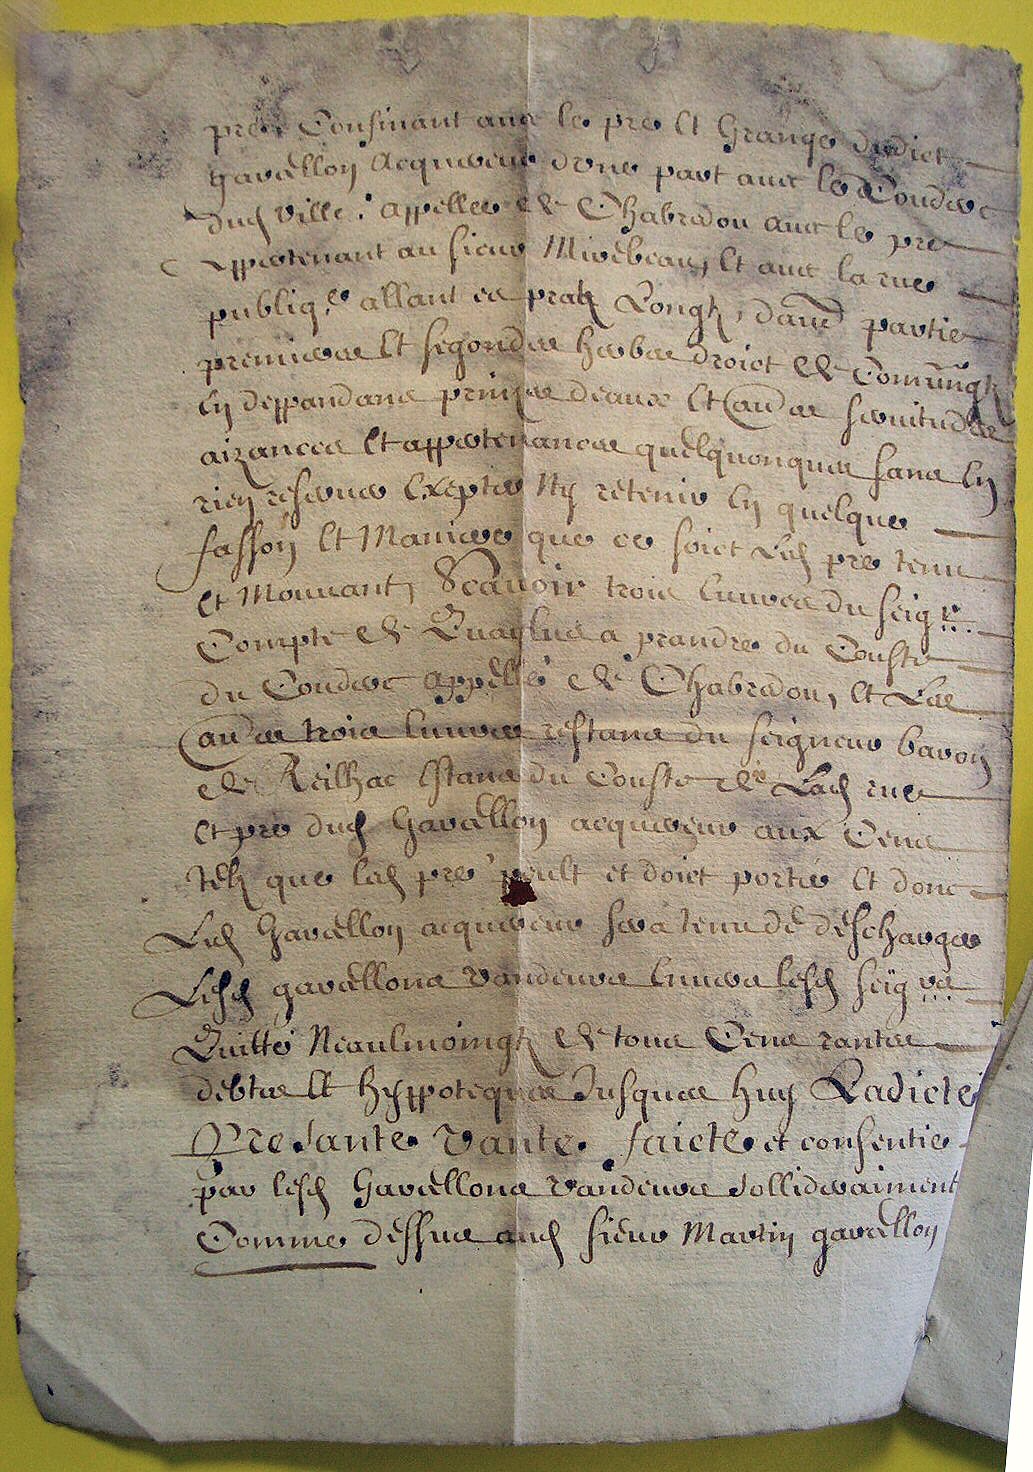 pre, Confinant avec le pre et Grange dudict
Gavallon acquereur d'une part avec le Couderc
dud ville, appelle de Chabredou avec le pre
appartenant au sieur Mirebeau, et avec la rue
publiq.e allant es pratz Longz, dau.e partie
premieres et segondes herbes droict de Comungz
en deppandans prinzes deaux et au.es servitudes
aizances et appartenances quelquonques sans en
rien reserver Exepter Ny retenir en quelque
fasson et Maniere que ce soict Led pre tenu
et Mouuant, Scauoir trois euures du seig.r
Compte de a prandre du Couste
du Couderc appelle de Chabredou, et Les
au.es trois euures restans du seigneur baron
de Reilhac estans du Couste de Lad rue
et pre dud Gavallon acquereur aux Cens
telz que led pre peult et doict porter et donc
Led Gavallon acquereur sera tenu de descharger
Lesd gavallons vandeurs enuers lesd seig.rs
Quitte Neaulmoingz de tous Cens rantes
debtes et hyppoteques Jusques huy Ladicte
Presante vante faicte et consentie
par lesd Gavallons vandeurs sollideraiment
Comme dessus aud sieur Martin gavallon